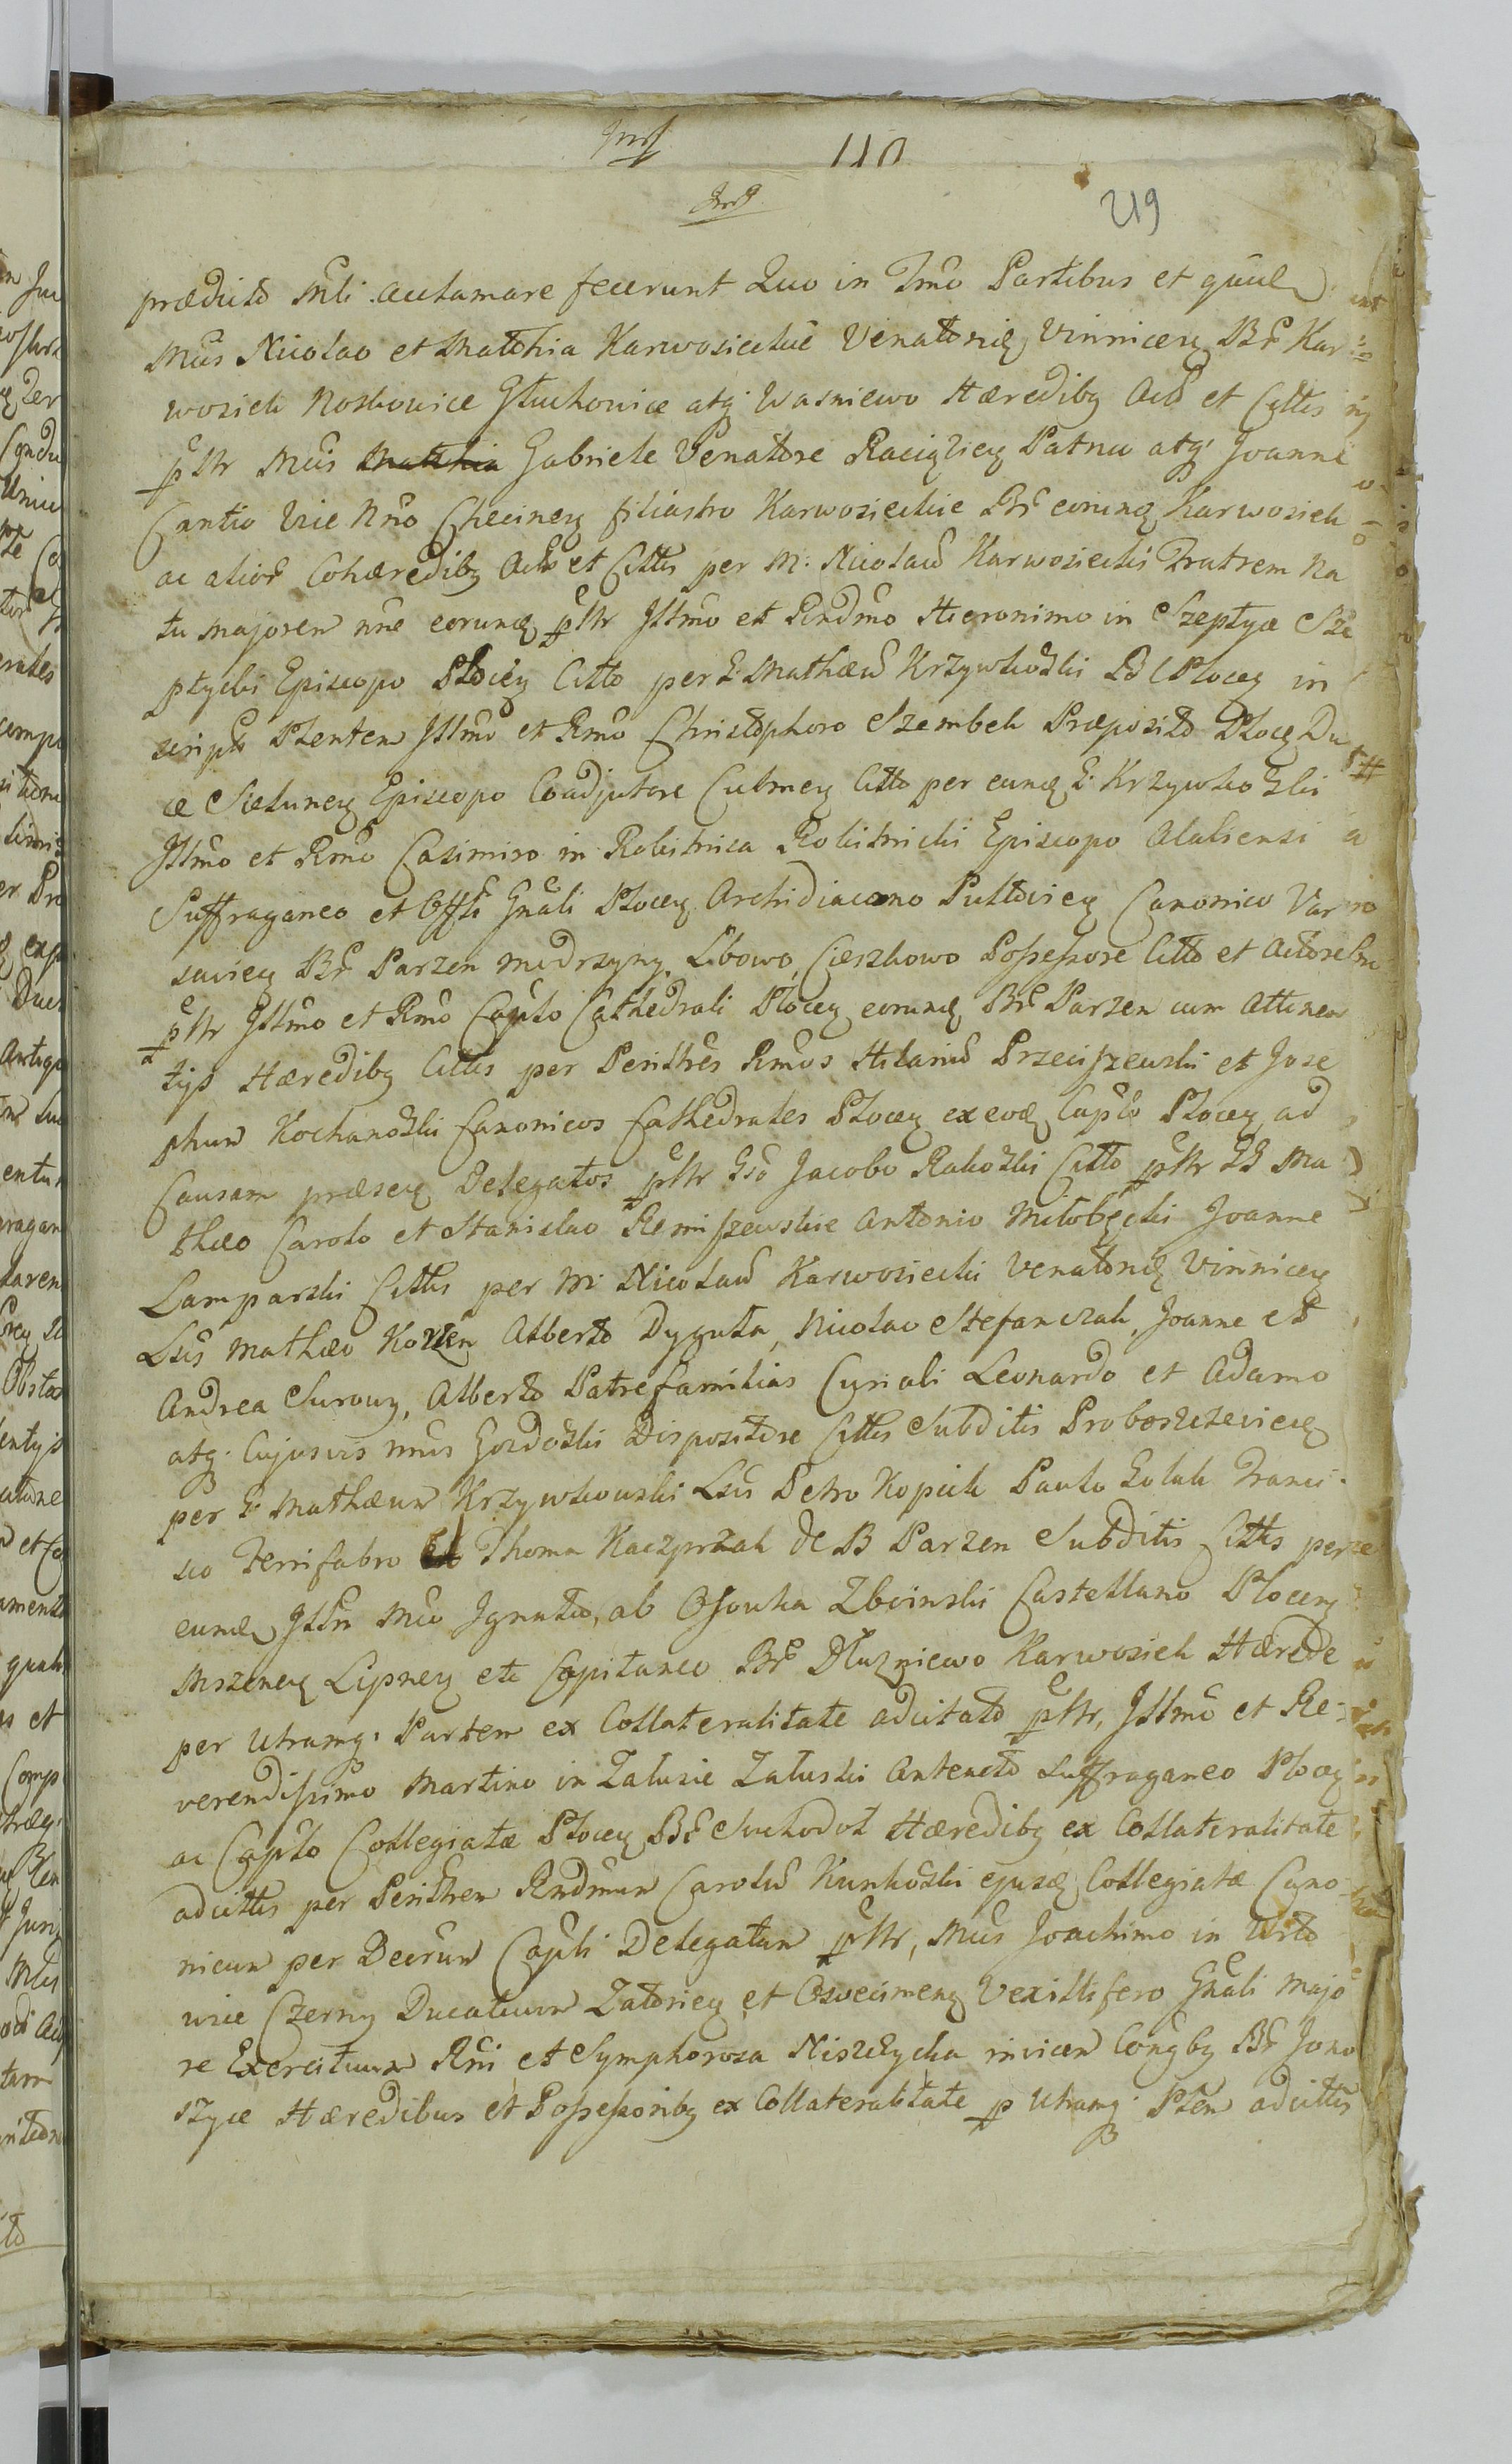 110
219
prædicto Mli acclamare fecerunt Quo in Tmo Partibus et
Mcis Nicolao et Mathia Karwosieckie Venatoriq Vinnicen Br Kar
wosieck Noskowice Głuchowice atq Wasniewo Hæredibq Act et Cittis
pltr Mcis Mathia Gabriele Venatore Raciązien Patruo atq Joanne
Cantio Vice Chęcinen filiastro Karwosieckie Br eorundq Karwosieck
ac alior Cohæredibq et Cittis per M. Nicolaum Karwosiecki Fratrem Na
tu majorem nne eorundq pltr Illmo et Rndmo Hieronimo in Szeptyce Sze
ptycki Episcopo Płocen Citto per G. Mathæum Krzywkowski Płocen in
script Plenten Illmo et Rmo Christophoro Szembek Præposito Płocen Du
ce Sielunen Episcopo Coadjutore Culmen Citto per eundq G. Krzywkowski
Illmo et Rmo Casimiro in Rokitnica Rokitnicki Episcopo Alaliensi
Suffraganeo et Offli Gnali Płocen Archidiacono Pultovien Canonico Var
savien Br Parzen Modrzyny Libowo, Cieszkowo Possessore Citto et Actore
pltr Illmo et Rmo Caplo Cathedrali Płocen eorundq Br Parzen cum Attinen
tijs Hæredibq Cittis per Perillres Rmos Hilarium Przeciszewski et Jose
phum Kochanowski Canonicos Cathedrales Płocen ex eodq Caplo Płocen ad
Causam præsen Delegatos pltr Gso Jacobo Rakowski Citto pltr GG Ma
thæo Carolo et Stanislao Remiszewskie Antonio Miłobęcki Joanne
Lamparski Cittis per M. Nicolaum Karwosiecki Venatoriq Vinnicen
Lsis Mathæo Korzen Alberto Dyguła, Nicolao Stefanczak, Joanne et
Andrea Surowy, Alberto Patrefamilias Curiali Leonardo et Adamo
atq Cujusvis mnis Gozdowski Dispositore Cittis Subditis Proboszczevicen
per G. Mathæum Krzywkowski Lsis Petro Kopick Paulo Golak Franci-
sco Ferrifabro et Thoma Kaczprzak de B Parzen Subditis Cittis per
eundq Illri Mco Ignatio, ab Ossowka Zboinski Castellano Płocen
Mszenen Lipnen etc Capitaneo Br Dłuzniewo Karwosieck Hærede
per Utramq Partem ex Collateralitate adcitato pltr, Illmo et Re-
verendissimo Martino in Zalusie Załuski Antenato Suffraganeo Płocen
ac Caplo Collegiatæ Płocen Br Suchodoł Hæredibq ex Collateralitate
adcittis per Perillrem Rndmum Carolum Kunkowski ejusdq Collegiatæ Cano
nicum per Decrum Capli Delegatum pltr, Mcis Joachimo in Wito
wice Czerny Ducatuum Zatorien et Osvecimen Vexillifero Gnali Majo
re Exercituum Rni et Symphorosa Niszczycka invicem Congbq Br Jono
szyce Hæredibus et Possessoribq ex Collateralitate p Utramq Ptem adcittis